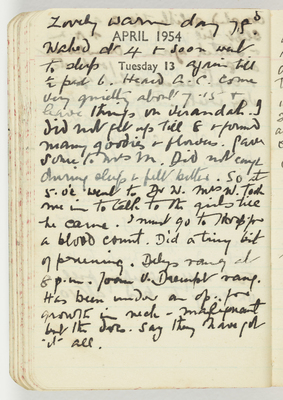 Lovely warm day 78°
APRIL 1954
Waked at 4 & soon went
to sleep again till
Tuesday 13
½ past 6. Heard A.C. come
very quietly about 7.15 &
leave things on verandah. I
did not get up till 8 & found
many goodies & flowers. Gave
some to Mrs M. Did not cough
during sleep & felt better. So at
5. o'c went to Dr W. Mrs W. took
me in to talk to the girls till
he came. I must go to Hosp for
a blood count. Did a tiny bit
of pruning. Delys rang at
8 p.m. Joan V. Drempt rang.
Has been under an op. for
growth in neck - malignant
but the docs. say they have got
it all.